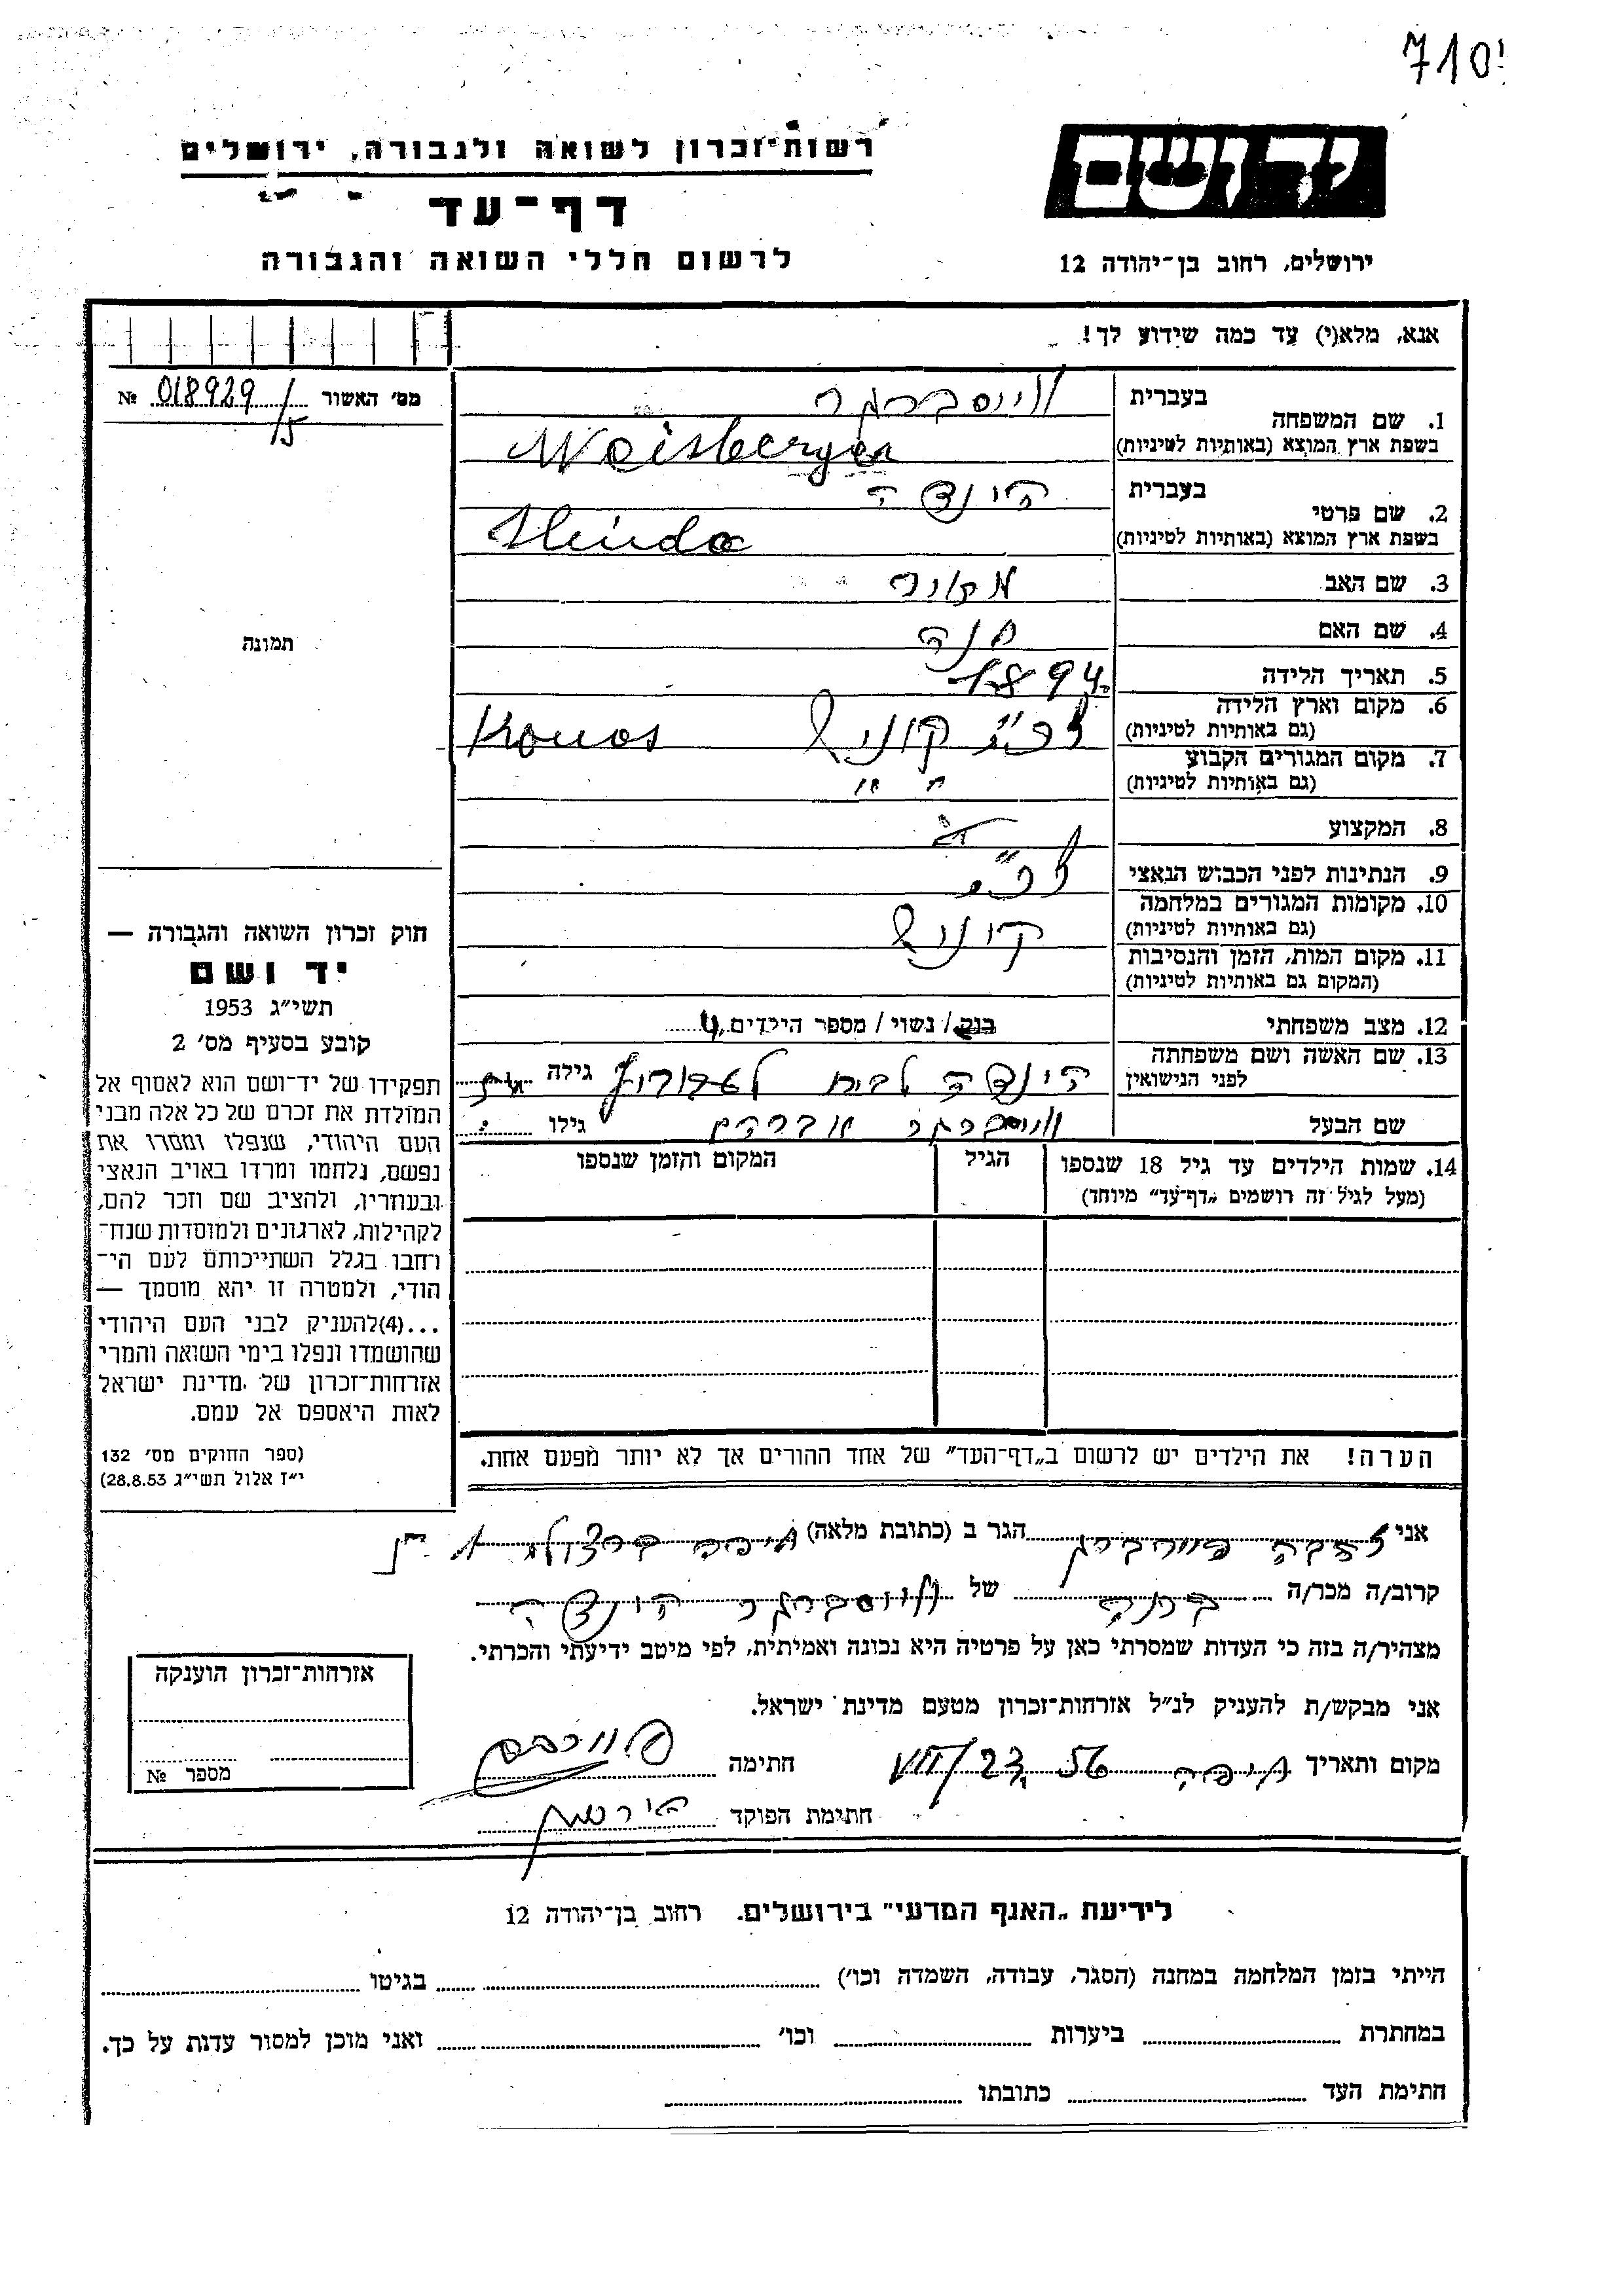 710
רשות־זכרון לשואה ולגבורה, ירושלים
דף־עד
לרשום חללי השואה והגבורה
יד ושם
ירושלים, רחוב בן־יהודה 12
אנא, מלא(י) עד כמה שידוע לך!
מס׳ האשור 018929/15 №
1. שם המשפחה
בעברית וייסברגר
בשפת ארץ המוצא (באותיות לטיניות) Weisberger
2. שם פרטי
בעברית הינדה
בשפת ארץ המוצא (באותיות לטיניות) Hinda
3. שם האב מאיר
4. שם האם חנה
5. תאריך הלידה 1894
6. מקום וארץ הלידה
(גם באותיות לטיניות)
7. מקום המגורים הקבוע
(גם באותיות לטיניות)
8. המקצוע
9. הנתינות לפני הכבוש הנאצי
10. מקומות המגורים במלחמה
(גם באותיות לטיניות)
11. מקום המות, הזמן והנסיבות
(המקום גם באותיות לטיניות)
12. מצב משפחתי רווק / נשוי / מספר הילדים 4
13. שם האשה ושם משפחתה
לפני הנישואין הינדה לבית גילה
שם הבעל וייסברגר אברהם גילו
14. שמות הילדים עד גיל 18 שנספו הגיל המקום והזמן שנספו
(מעל לגיל זה רושמים „דף־עד״ מיוחד)
הערה! את הילדים יש לרשום ב„דף־העד״ של אחד ההורים אך לא יותר מפעם אחת.
תמונה
חוק זכרון השואה והגבורה —
יד ושם
תשי״ג 1953
קובע בסעיף מס׳ 2
תפקידו של יד־ושם הוא לאסוף אל
המולדת את זכרם של כל אלה מבני
העם היהודי, שנפלו ומסרו את
נפשם, נלחמו ומרדו באויב הנאצי
ובעוזריו, ולהציב שם וזכר להם,
לקהילות, לארגונים ולמוסדות שנח־
רחבו בגלל השתייכותם לעם הי־
הודי, ולמטרה זו יהא מוסמך —
...(4)להעניק לבני העם היהודי
שהושמדו ונפלו בימי השואה והמרי
אזרחות־זכרון של מדינת ישראל
לאות היאספם אל עמם.
(ספר החוקים מס׳ 132
י״ז אלול תשי״ג 28.8.53)
אני הגר ב (כתובת מלאה) חיפה
קרוב/ה מכר/ה של וייסברגר הינדה
מצהיר/ה בזה כי העדות שמסרתי כאן על פרטיה היא נכונה ואמיתית, לפי מיטב ידיעתי והכרתי.
אני מבקש/ת להעניק לנ״ל אזרחות־זכרון מטעם מדינת ישראל.
מקום ותאריך חיפה 56 23/VII חתימה
חתימת הפוקד
אזרחות־זכרון הוענקה
מספר №
לידיעת „האגף המדעי״ בירושלים. רחוב בן־יהודה 12
הייתי בזמן המלחמה במחנה (הסגר, עבודה, השמדה וכו׳) בגיטו
במחתרת ביערות וכו׳ ואני מוכן למסור עדות על כך.
חתימת העד כתובתו